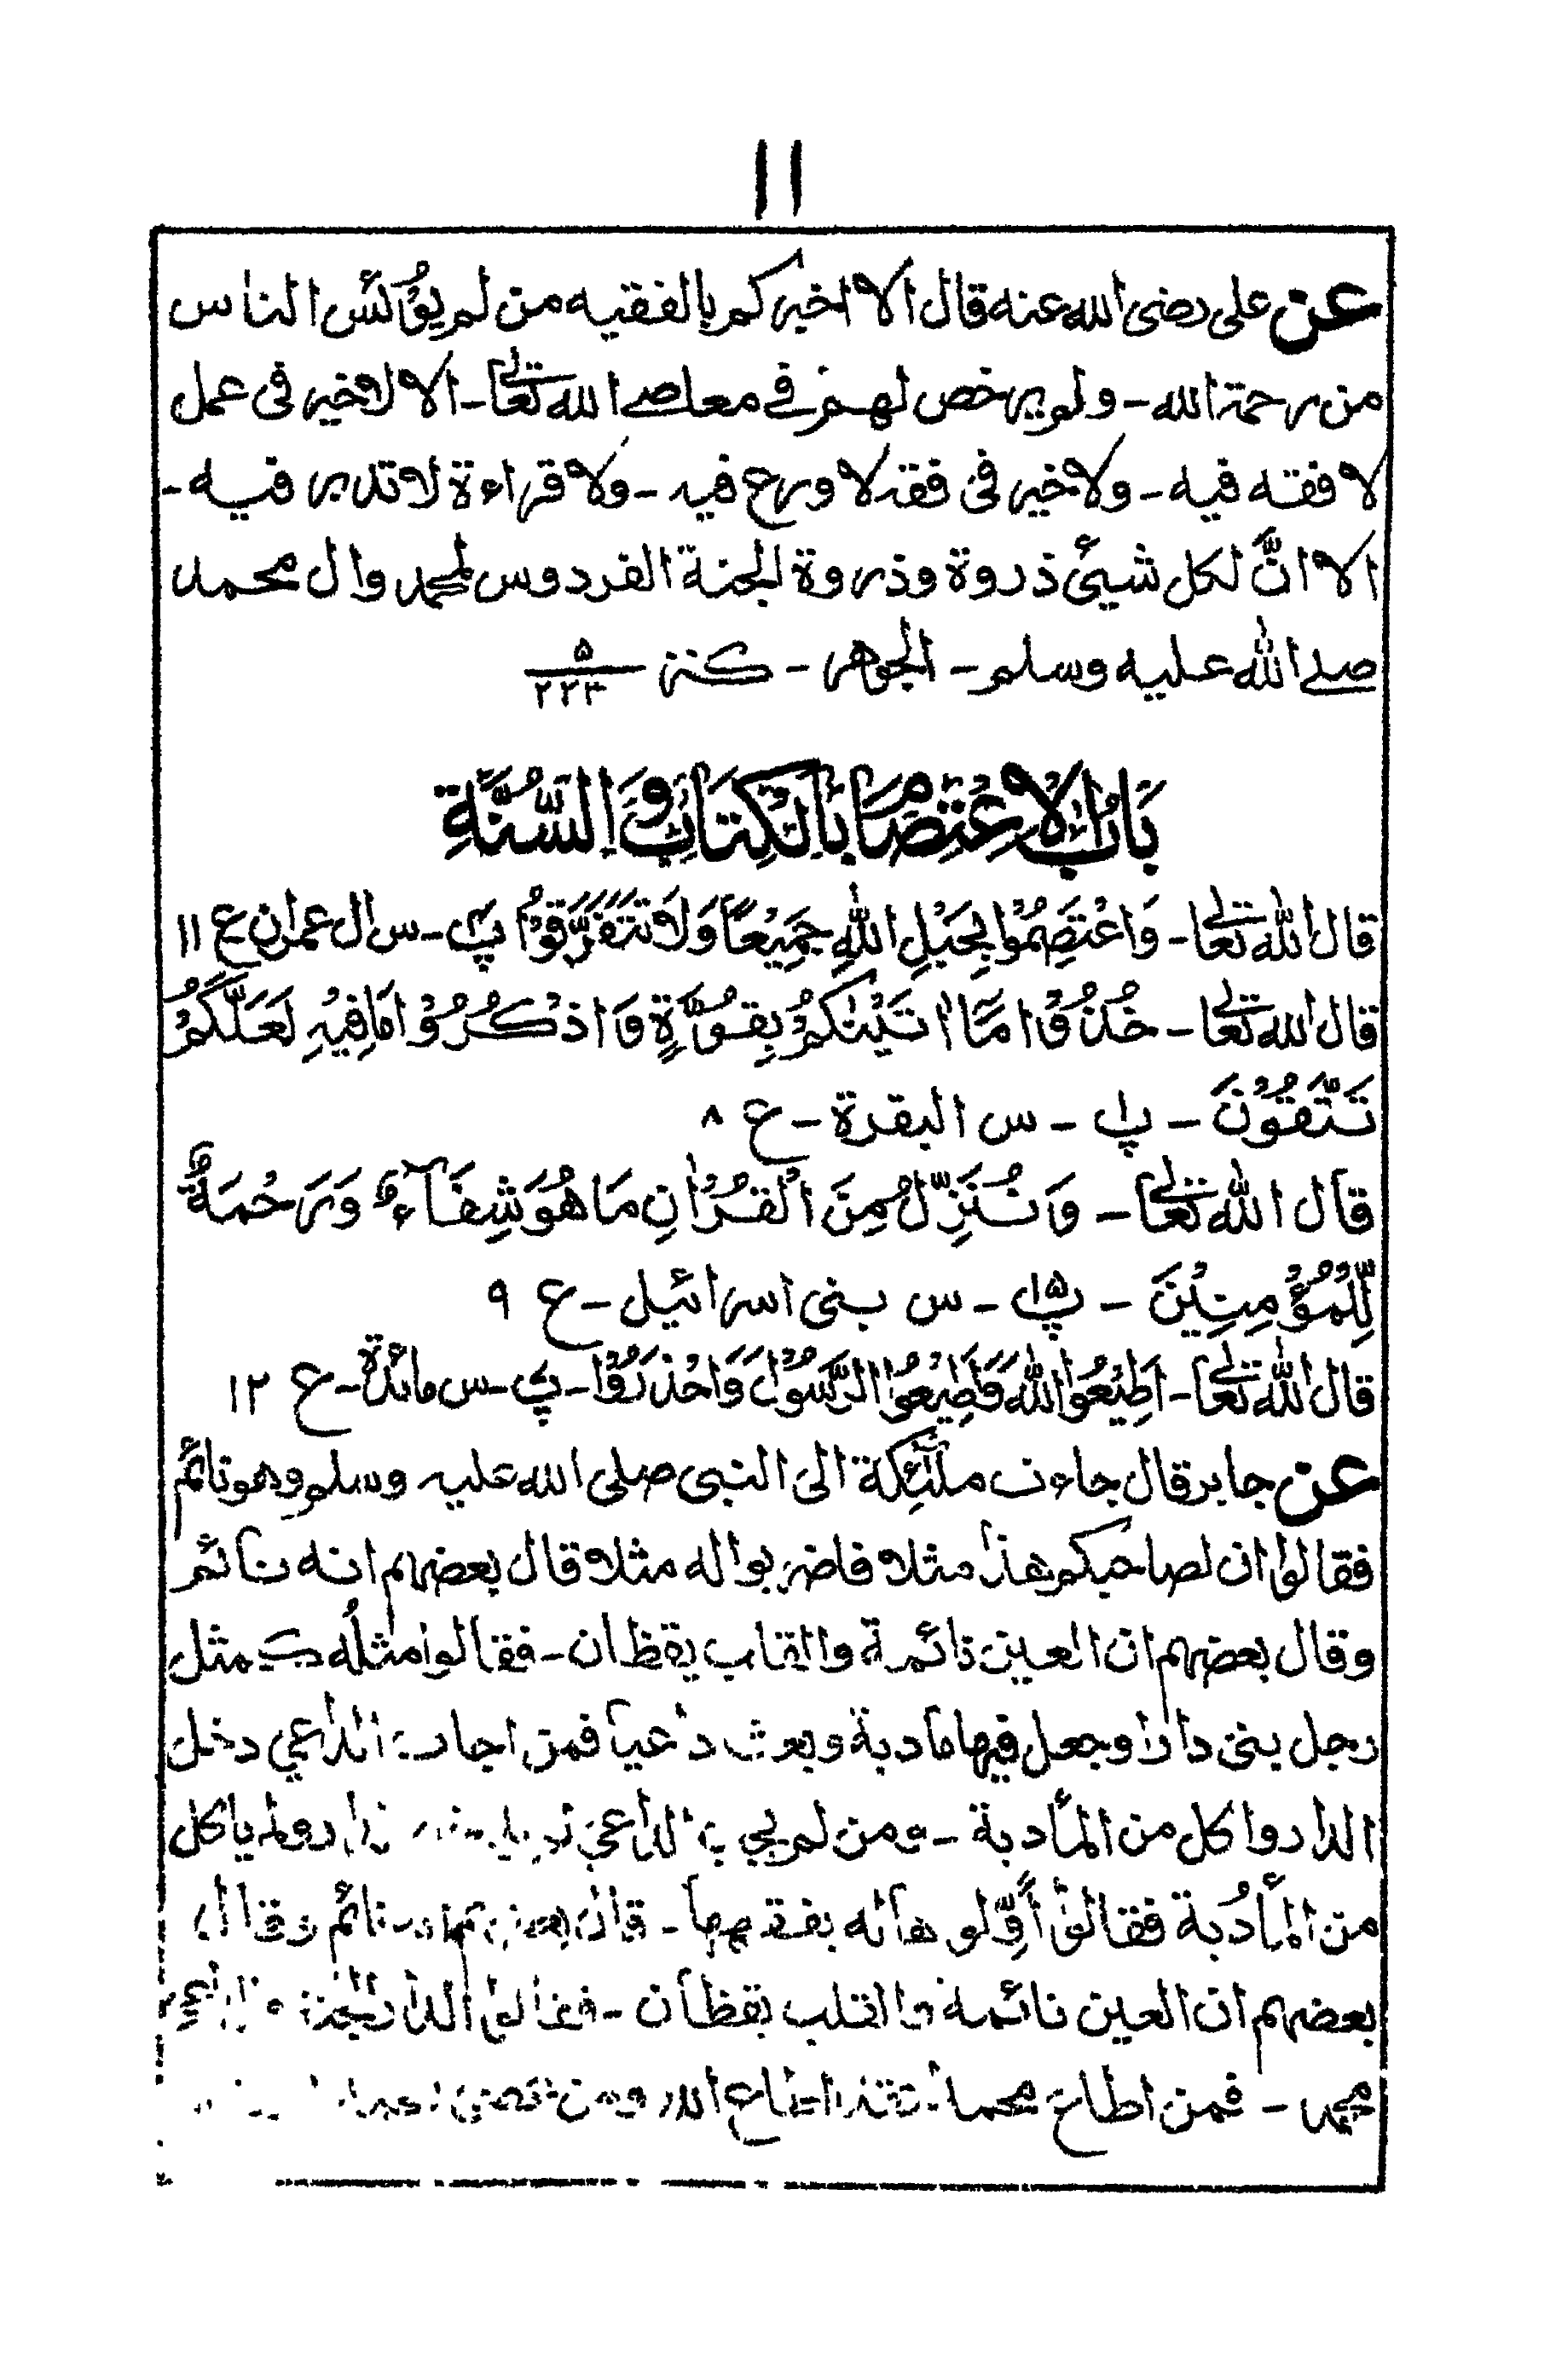 ۱۱
عن علی رضی الله عنه قال الا اخبرکم بالفقیه من لم یؤئس الناس
من رحمة الله - ولم یرخص لهم فی معاصی الله تعالی - الا لا خیر فی عمل
لا فقه فیه - ولا خیر فی فقه لا ورع فیه - ولا قراءة لا تدبر فیه -
الا انَّ لکل شیئ ذروة وذروة الجنة الفردوس لمحمد وال محمد
صلے الله علیه وسلم - الجوهر - کنز ۵/۲۲۳
بَابُ الْاِعْتِصَامِ بِالْکِتَابِ وَالسُّنَّةِ
قال الله تعالی - وَاعْتَصِمُوْا بِحَبْلِ اللهِ جَمِیْعًا وَلَا تَتَفَرَّقُوْا پ۴ - س ال عمران ع ۱۱
قال الله تعالی - خُذُوْا مَآ اٰتَیْنٰکُمْ بِقُوَّةٍ وَاذْکُرُوْا مَا فِیْهِ لَعَلَّکُمْ
تَتَّقُوْنَ - پ۱ - س البقرة - ع ۸
قال الله تعالی - وَنُنَزِّلُ مِنَ الْقُرْاٰنِ مَا هُوَ شِفَآءٌ وَرَحْمَةٌ
لِّلْمُؤْمِنِیْنَ - پ۱۵ - س بنی اسرائیل - ع ۹
قال الله تعالی - اَطِیْعُوا اللهَ وَاَطِیْعُوا الرَّسُوْلَ وَاحْذَرُوْا - پ - س مائدة - ع ۱۲
عن جابر قال جاءت ملٰئکة الی النبی صلی الله علیه وسلم وهو نائم
فقالوا ان لصاحبکم هذا مثلا فاضربوا له مثلا قال بعضهم انه نائم
وقال بعضهم ان العین نائمة والقلب یقظان - فقالوا مثلُه کمثل
رجل بنی دارا وجعل فیها مادبة وبعث داعیا فمن اجاب الداعی دخل
الدار واکل من المأدبة - ومن لم یجب الداعی لم یدخل الدار ولم یاکل
من المأدُبة فقالوا أوِّلوها له یفقهها - قال بعضهم انه نائم وقال
بعضهم ان العین نائمة والقلب یقظان - فقالوا الدار الجنة والداعی
محمد - فمن اطاع محمدا فقد اطاع الله ومن عصی